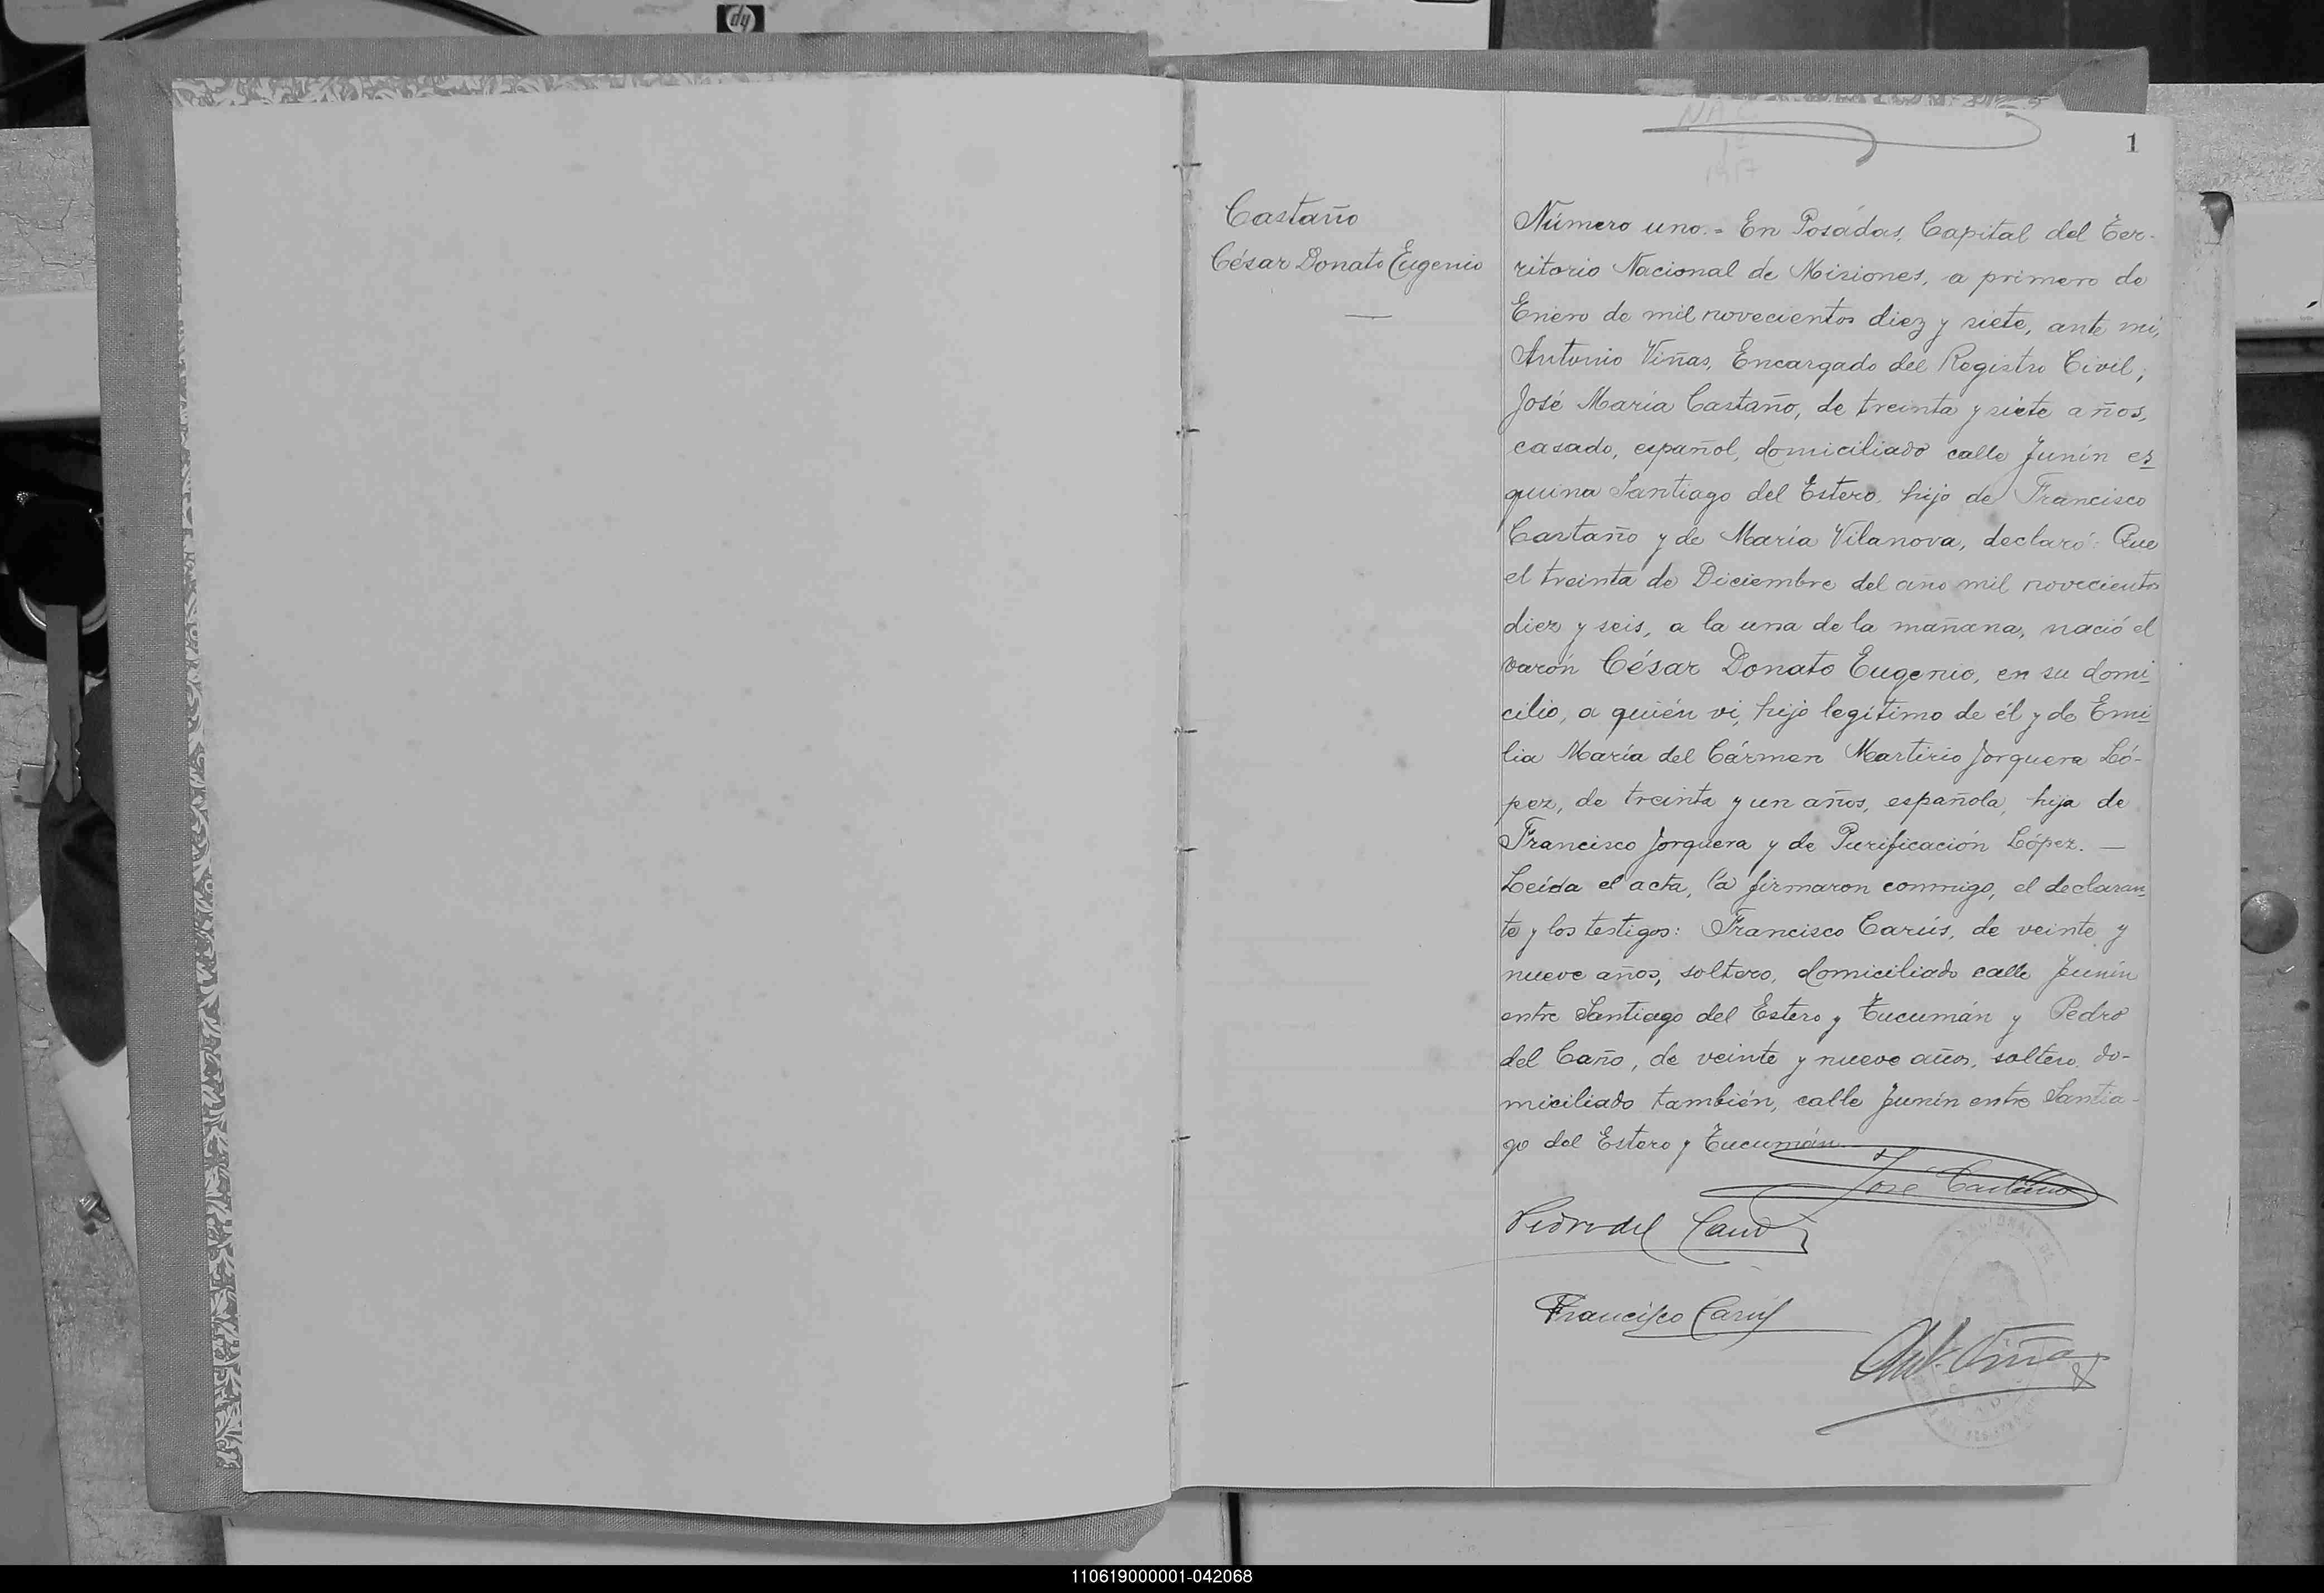 hp
NAC
1917
1
Castaño
César Donato Eugenio
Número uno.- En Posadas, Capital del Ter-
ritorio Nacional de Misiones, a primero de
Enero de mil novecientos diez y siete, ante mí,
Antonio Viñas, Encargado del Registro Civil,
José María Castaño, de treinta y siete años,
casado, español, domiciliado calle Junín es
quina Santiago del Estero, hijo de Francisco
Castaño y de María Vilanova, declaró: Que
el treinta de Diciembre del año mil novecientos
diez y seis, a la una de la mañana, nació el
varón César Donato Eugenio, en su domi
cilio, a quién vi, hijo legítimo de él y de Emi
lia María del Cármen Martirio Jorquera Ló-
pez, de treinta y un años, española, hija de
Francisco Jorquera y de Purificación López. —
Leída el acta, la firmaron conmigo, el declaran
te y los testigos: Francisco Carús, de veinte y
nueve años, soltero, domiciliado calle Junín
entre Santiago del Estero y Tucumán y Pedro
del Caño, de veinte y nueve años, soltero, do-
miciliado también, calle Junín entre Santia-
go del Estero y Tucumán.
José Castaño
Pedro del Cano
Francisco Carús
Ant. Viñas
110619000001-042068